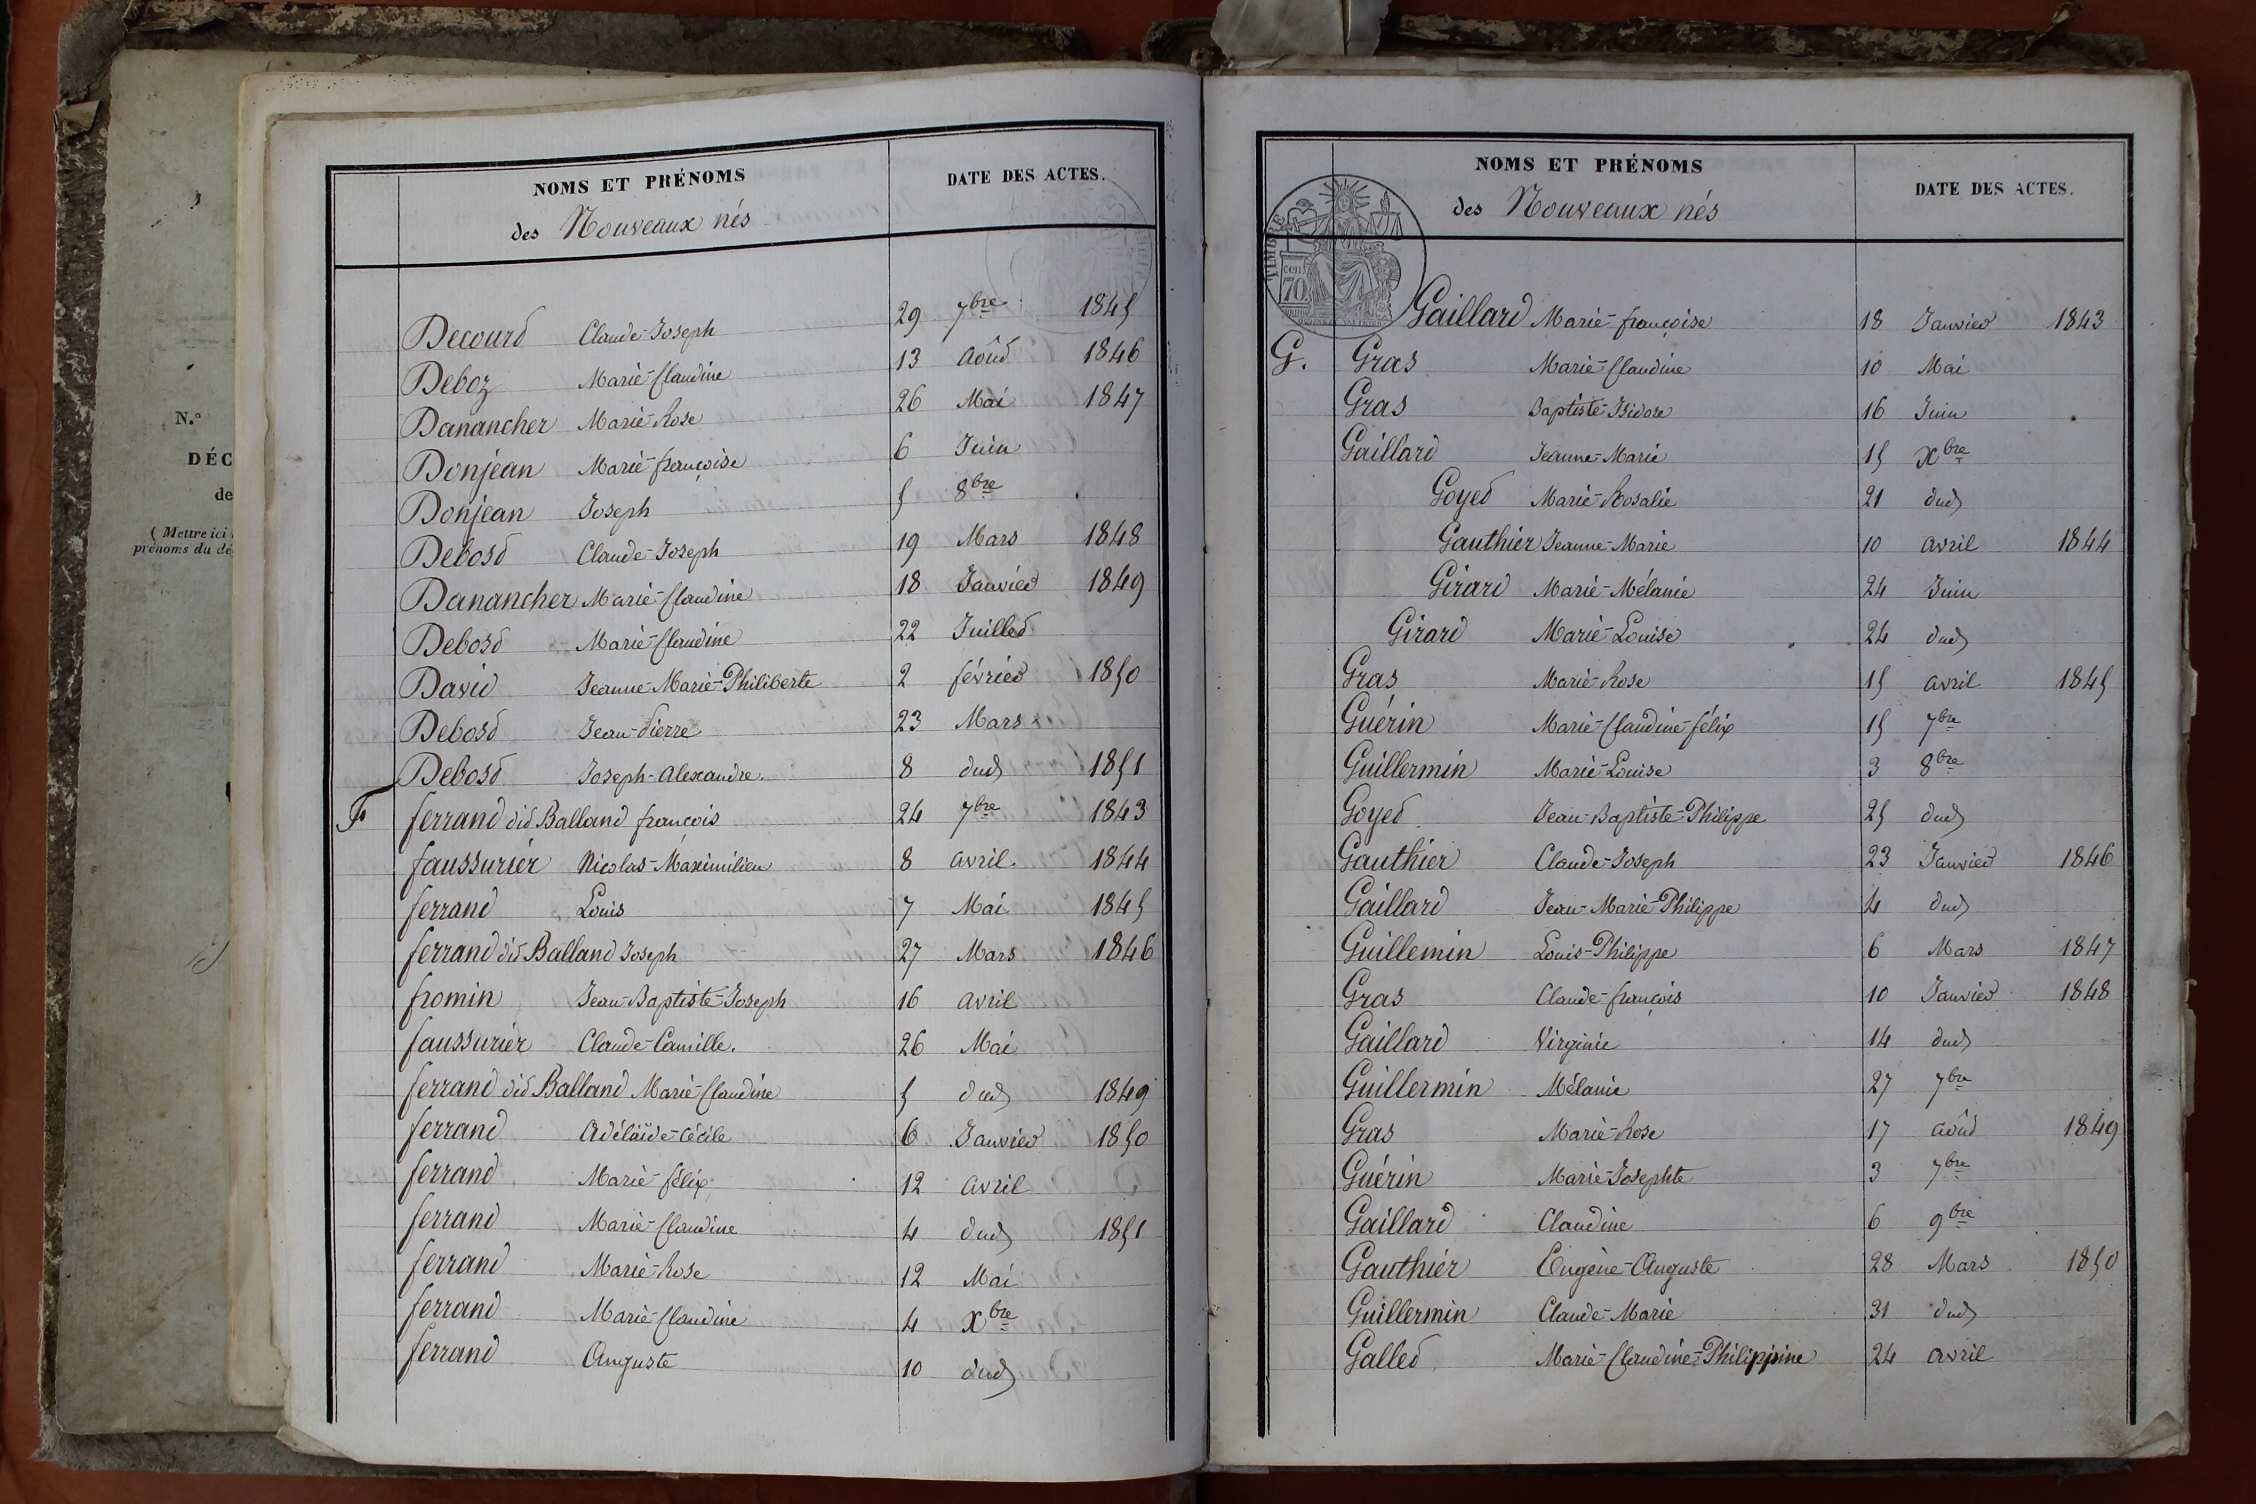 N.º
DÉC
de
( Mettre ici
prénoms du dé
NOMS ET PRÉNOMS
DATE DES ACTES.
des Nouveaux nés
Decourt Claude-Joseph 29 7bre 1845
Deboz Marie-Claudine 13 août 1846
Danancher Marie-Rose 26 Mai 1847
Donjean Marie-françoise 6 Juin
Donjean Joseph 5 8bre
Debost Claude-Joseph 19 Mars 1848
Danancher Marie-Claudine 18 Janvier 1849
Debost Marie-Claudine 22 Juillet
David Jeanne-Marie-Philiberte 2 février 1850
Debost Jean-Pierre 23 Mars
Debost Joseph-alexandre. 8 dud 1851
F ferrand dit Balland françois 24 7bre 1843
faussurier Nicolas-Maximilien 8 avril. 1844
ferrand Louis 7 Mai 1845
ferrand dit Balland Joseph 27 Mars 1846
fromin Jean-Baptiste-Joseph 16 avril
faussurier Claude-Camille. 26 Mai
ferrand dit Balland Marie-Claudine 5 dud 1849
ferrand Adélaïde-Cécile 6 Janvier 1850
ferrand Marie-félix 12 avril
ferrand Marie-Claudine 4 dud 1851
ferrand Marie-Rose 12 Mai
ferrand Marie-Claudine 4 Xbre
ferrand Auguste 10 dud
NOMS ET PRÉNOMS
DATE DES ACTES.
des Nouveaux nés
TIMBRE
cent
70
Gaillard Marie-françoise 18 Janvier 1843
G. Gras Marie-Claudine 10 Mai
Gras Baptiste-Isidore 16 Juin
Gaillard Jeanne-Marie 15 Xbre
Goyet Marie-Rosalie 21 dud
Gauthier Jeanne-Marie 10 avril 1844
Girard Marie-Mélanie 24 Juin
Girard Marie-Louise 24 dud
Gras Marie-Rose 15 avril 1845
Guérin Marie-Claudine-félix 15 7bre
Guillermin Marie-Louise 3 8bre
Goyet Jean-Baptiste-Philippe 25 dud
Gauthier Claude-Joseph 23 Janvier 1846
Gaillard Jean-Marie-Philippe 4 dud
Guillemin Louis-Philippe 6 Mars 1847
Gras Claude-françois 10 Janvier 1848
Gaillard Virginie 14 dud
Guillermin Mélanie 27 7bre
Gras Marie-Rose 17 août 1849
Guérin Marie-Josephte 3 7bre
Gaillard Claudine 6 9bre
Gauthier Eugène-Auguste 28 Mars 1850
Guillermin Claude-Marie 31 dud
Gallet Marie-Claudine-Philippine 24 avril